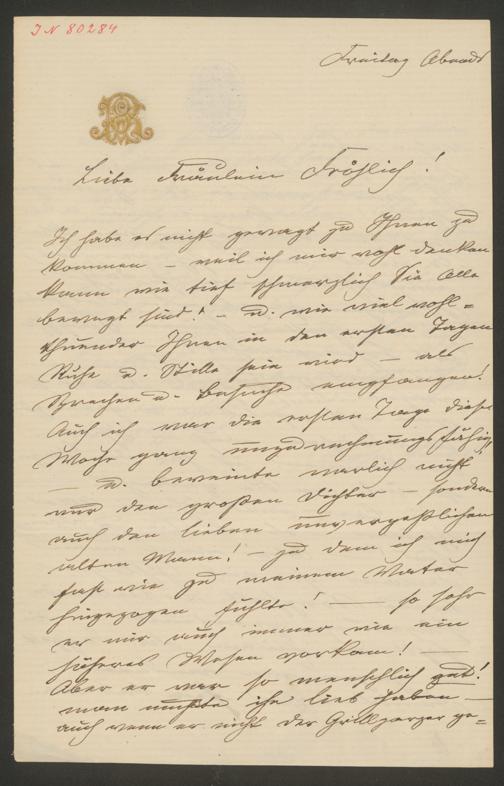 IN 80284
Freitag Abends
Liebe Fräulein Fröhlich!
Ich habe es nicht gewagt zu Ihnen zu
kommen – weil ich mir wohl denken
kann wie tief schmerzlich Sie Alle
bewegt sind! – u. wie viel wohl=
thuender Ihnen in den ersten Tagen
Ruhe u. Stille sein wird – als
Sprechen u. Besuche empfangen!
Auch ich war die ersten Tage dieser
Woche ganz
– u. beweinte warlich nicht
nur den großen Dichter – sondern
auch den lieben unvergeßlichen
alten Mann! – zu dem ich mich
fast wie zu meinem Vater
hingezogen fühlte! – so sehr
er mir auch immer wie ein
höheres Wesen vorkam! –
Aber er war so menschlich gut!
man mußte ihn lieb haben –
auch wenn er nicht der Grillparzer ge=